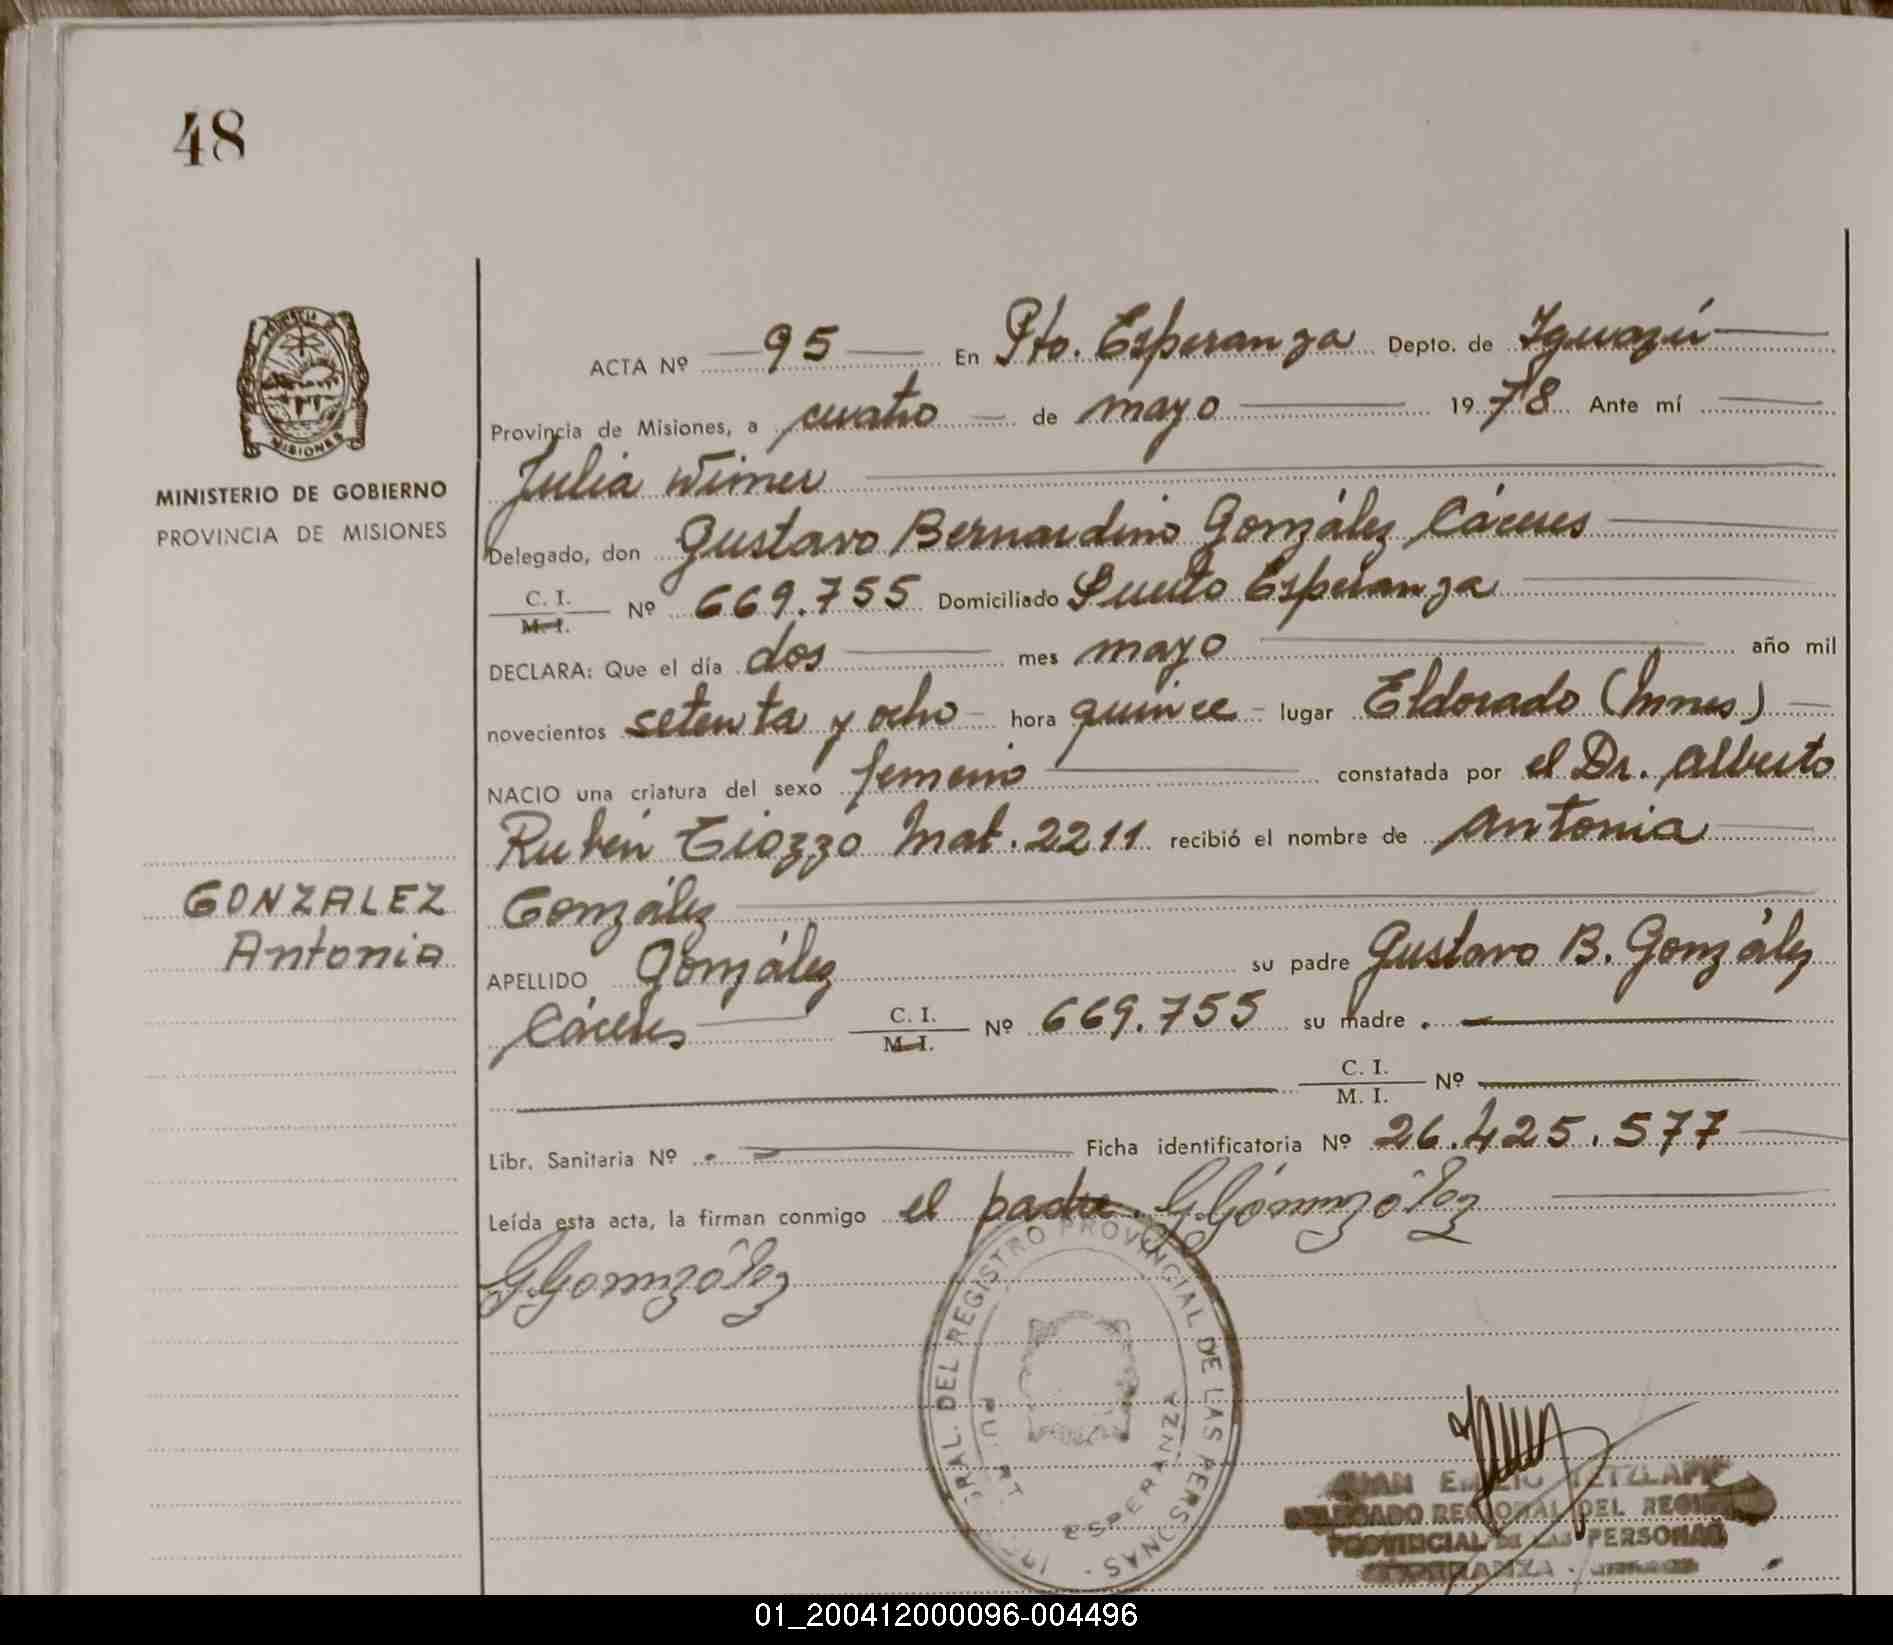 48
MINISTERIO DE GOBIERNO
PROVINCIA DE MISIONES
MISIONES
ACTA Nº 95 En Pto. Esperanza Depto. de Iguazú
Provincia de Misiones, a cuatro de mayo 1978 Ante mí
Julia Weimer
Delegado, don Gustavo Bernardino González Cáceres
C. I. M. I. Nº 669.755 Domiciliado Puerto Esperanza
DECLARA: Que el día dos mes mayo año mil
novecientos setenta y ocho hora quince lugar Eldorado (Mnes)
NACIO una criatura del sexo femenino constatada por el Dr. Alberto
Rubén Tiozzo Mat. 2211 recibió el nombre de Antonia
González
GONZALEZ
Antonia
APELLIDO González su padre Gustavo B. González
Cáceres C. I. M. I. Nº 669.755 su madre
C. I. M. I. Nº
Libr. Sanitaria Nº Ficha identificatoria Nº 26.425.577
Leída esta acta, la firman conmigo el padre. G.Gónnzólez
GGonnzólez
GRAL. DEL REGISTRO PROVINCIAL DE LAS PERSONAS
ESPERANZA
JUAN EMILIO TETZLAFF
DELEGADO REGIONAL DEL REGISTRO
PROVINCIAL DE LAS PERSONAS
ESPERANZA
01_200412000096-004496